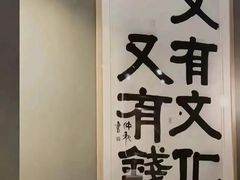 又有文化
又有錢